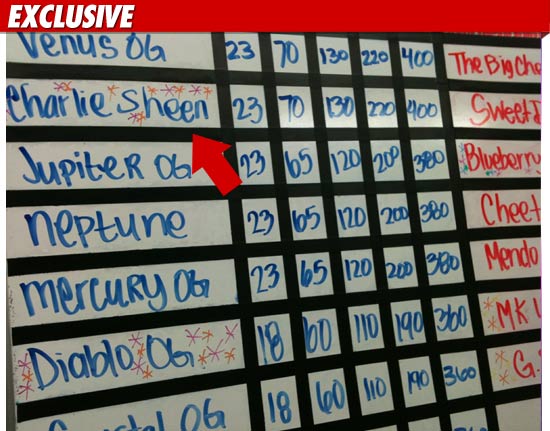 EXCLUSIVE
Venus OG 23 70 130 220 400
Charlie Sheen 23 70 130 220 400 Sweet
Jupiter OG 23 65 120 200 380 Blueberry
neptune 23 65 120 200 380
mercury OG 23 65 120 200 380 Mendo
Diablo OG 18 60 110 190 360 MK
OG 18 60 110 190 360 G.
The Big